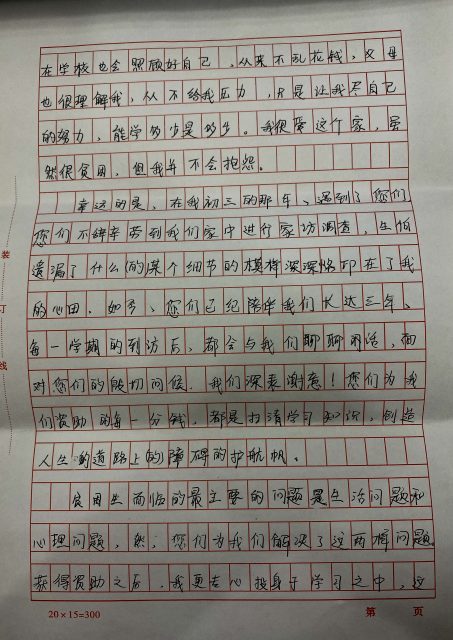 在学校也会照顾好自己，从来不乱花钱，父母
也很理解我，从不给我压力，只是让我尽自己
的努力，能学多少是多少。我很爱这个家，虽
然很贫困，但我并不会抱怨。
幸运的是，在我初三的那年，遇到了您们
您们不辞辛劳到我们家中进行家访调查，生怕
遗漏了什么的某个细节的模样深深烙印在了我
的心田。如今，您们已经陪伴我们长达三年，
每一学期的到访后，都会与我们聊聊闲话，面
对您们的殷切问候，我们深表谢意！您们为我
们资助的每一分钱，都是扫清学习知识，创造
人生的道路上的障碍的护航帆。
贫困生面临的最主要的问题是生活问题和
心理问题，然，您们为我们解决了这两样问题
获得资助之后，我更专心投身于学习之中，这
装
订
线
20×15=300
第 页